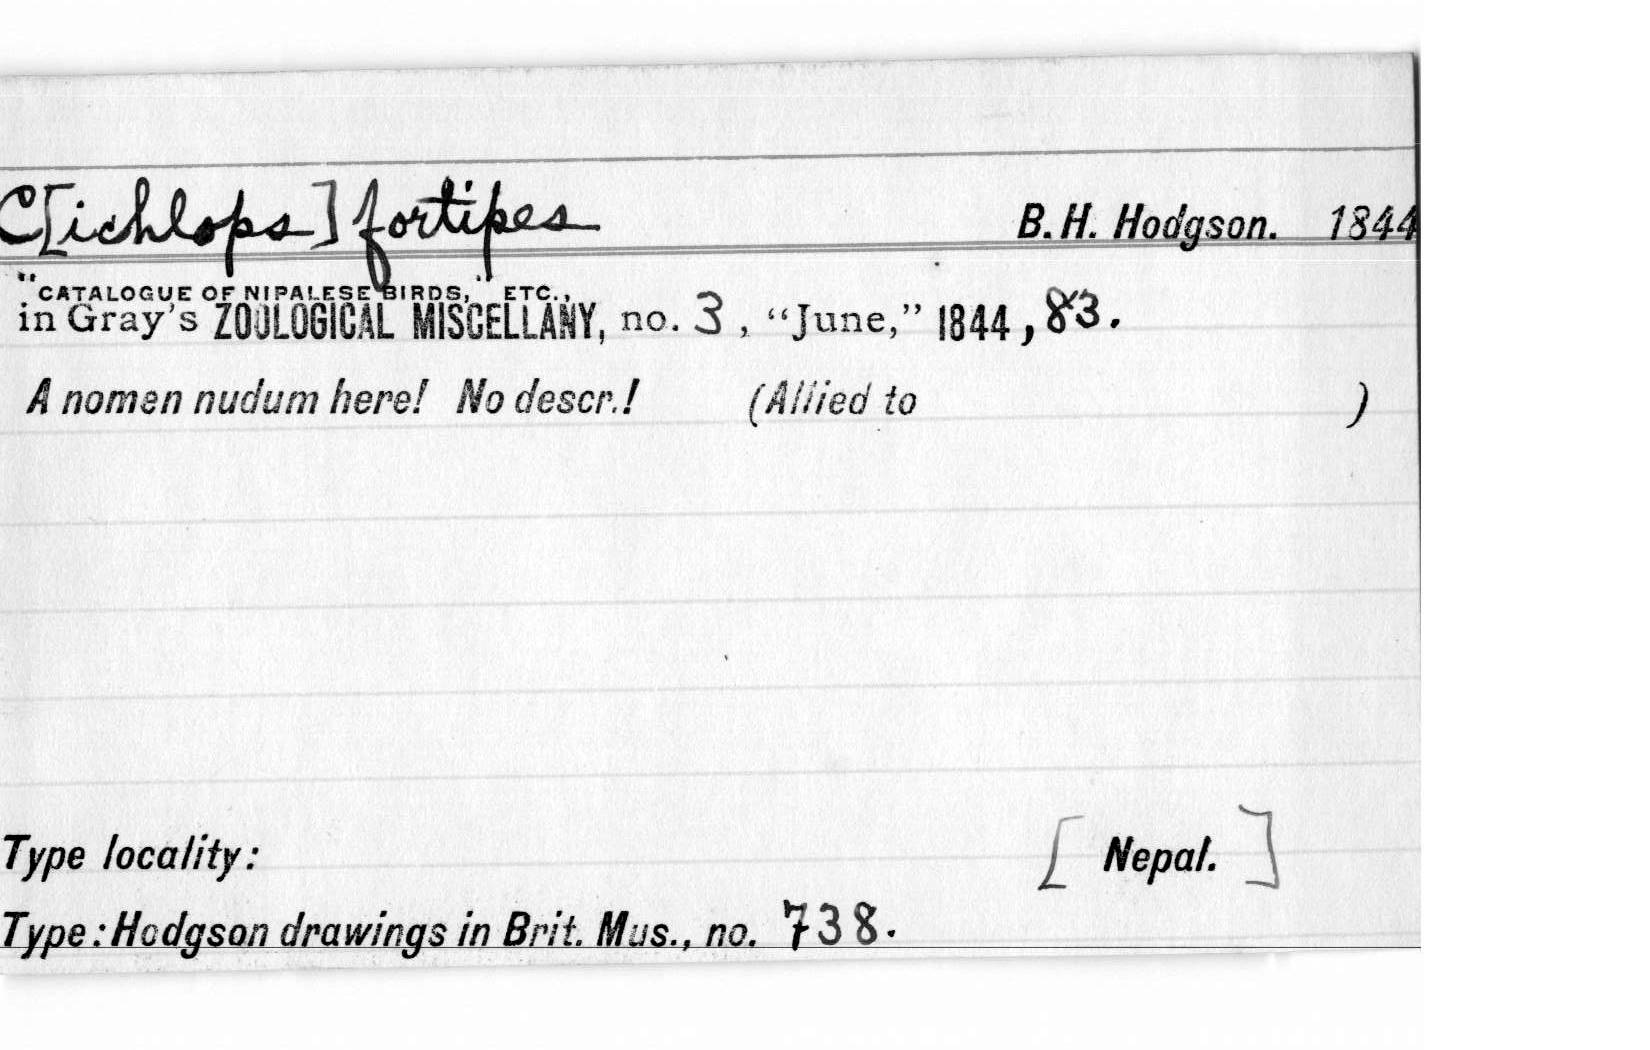 C[ichlops] fortipes B. H. Hodgson. 1844
"CATALOGUE OF NIPALESE BIRDS," ETC.,
in Gray's ZOOLOGICAL MISCELLANY, no. 3, "June," 1844, 83.
A nomen nudum here! No descr.! (Allied to )
Type locality: [Nepal.]
Type: Hodgson drawings in Brit. Mus., no. 738.